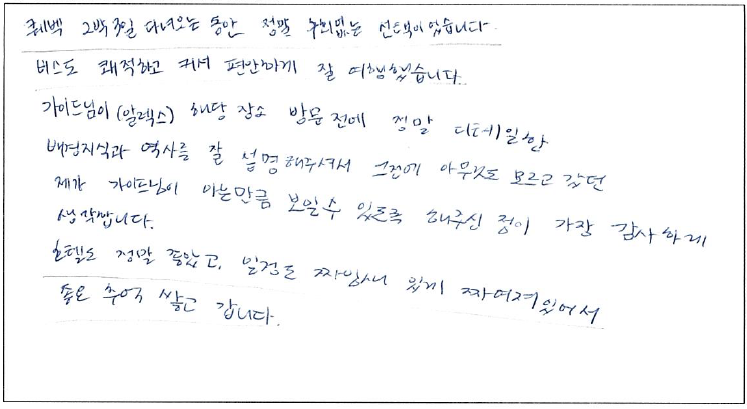 퀘백 2박3일 다녀오는 동안 정말 후회없는 선택이었습니다.
버스도 쾌적하고 커서 편안하게 잘 여행했습니다.
가이드님이 (알렉스) 해당 장소 방문 전에 정말 디테일한
배경지식과 역사를 잘 설명해주셔서 그전에 아무것도 모르고 갔던
제가 가이드님이 아는만큼 보일수 있도록 해주신 점이 가장 감사하게
생각합니다.
호텔도 정말 좋았고, 일정도 짜임새 있게 짜여져있어서
좋은 추억 쌓고 갑니다.